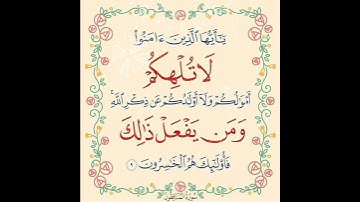 يَٰٓأَيُّهَا ٱلَّذِينَ ءَامَنُوا۟
لَا تُلْهِكُمْ
أَمْوَٰلُكُمْ وَلَآ أَوْلَٰدُكُمْ عَن ذِكْرِ ٱللَّهِ ۚ
وَمَن يَفْعَلْ ذَٰلِكَ
فَأُو۟لَٰٓئِكَ هُمُ ٱلْخَٰسِرُونَ ٩
سُورَةُ المُنَافِقُون